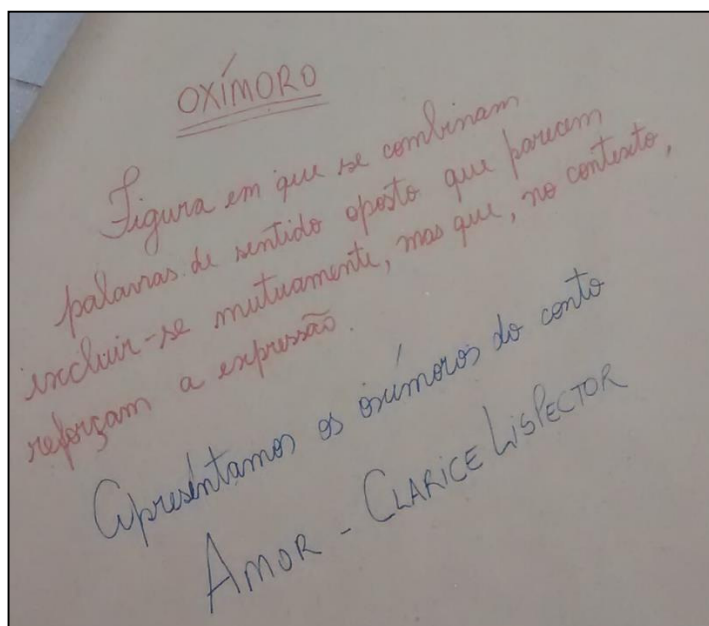 OXÍMORO
Figura em que se combinam
palavras de sentido oposto que parecem
excluir-se mutuamente, mas que, no contexto,
reforçam a expressão.
Apresentamos os oxímoros do conto
AMOR - CLARICE LISPECTOR